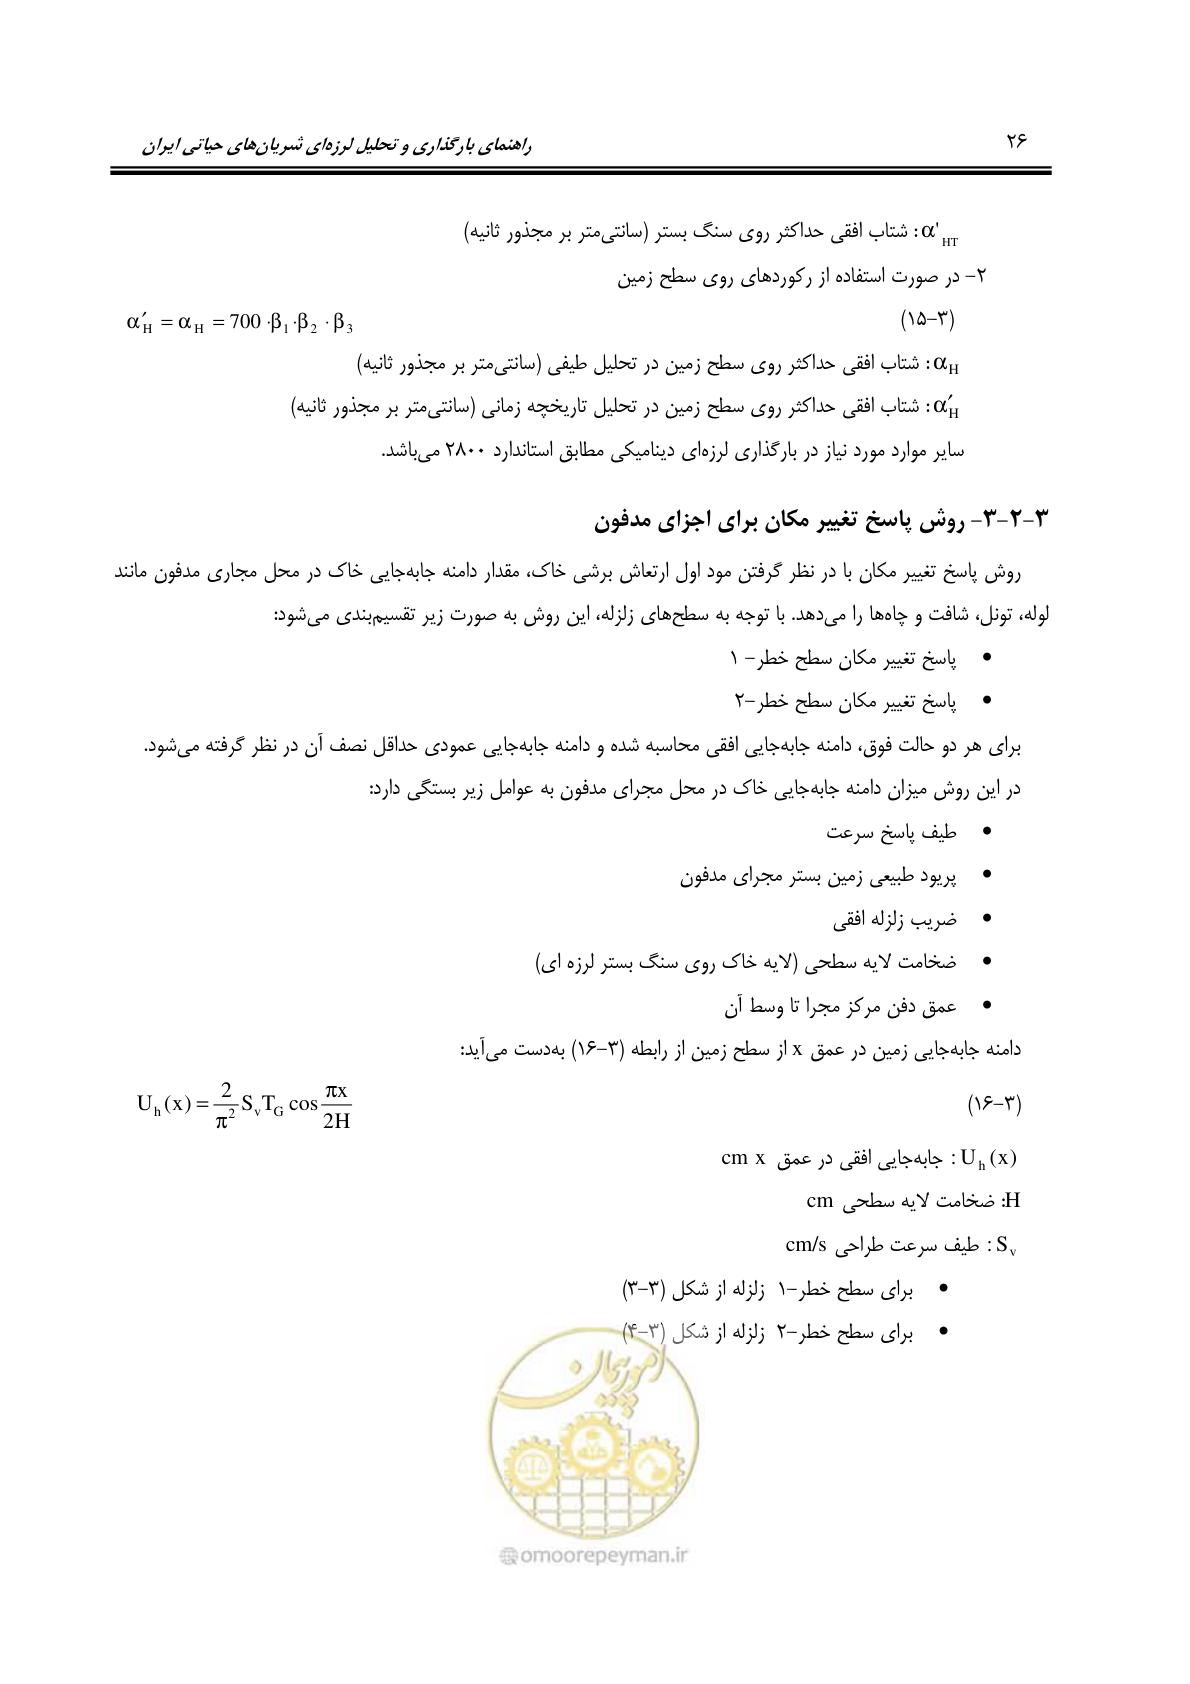 ۲۶
راهنمای بارگذاری و تحلیل لرزه‌ای شریان‌های حیاتی ایران
α'HT : شتاب افقی حداکثر روی سنگ بستر (سانتی‌متر بر مجذور ثانیه)
۲- در صورت استفاده از رکوردهای روی سطح زمین
(۳-۱۵) α′H = αH = 700 ·β1·β2 ·β3
αH : شتاب افقی حداکثر روی سطح زمین در تحلیل طیفی (سانتی‌متر بر مجذور ثانیه)
α′H : شتاب افقی حداکثر روی سطح زمین در تحلیل تاریخچه زمانی (سانتی‌متر بر مجذور ثانیه)
سایر موارد مورد نیاز در بارگذاری لرزه‌ای دینامیکی مطابق استاندارد ۲۸۰۰ می‌باشد.
۳-۲-۳- روش پاسخ تغییر مکان برای اجزای مدفون
روش پاسخ تغییر مکان با در نظر گرفتن مود اول ارتعاش برشی خاک، مقدار دامنه جابه‌جایی خاک در محل مجاری مدفون مانند
لوله، تونل، شافت و چاه‌ها را می‌دهد. با توجه به سطح‌های زلزله، این روش به صورت زیر تقسیم‌بندی می‌شود:
• پاسخ تغییر مکان سطح خطر- ۱
• پاسخ تغییر مکان سطح خطر-۲
برای هر دو حالت فوق، دامنه جابه‌جایی افقی محاسبه شده و دامنه جابه‌جایی عمودی حداقل نصف آن در نظر گرفته می‌شود.
در این روش میزان دامنه جابه‌جایی خاک در محل مجرای مدفون به عوامل زیر بستگی دارد:
• طیف پاسخ سرعت
• پریود طبیعی زمین بستر مجرای مدفون
• ضریب زلزله افقی
• ضخامت لایه سطحی (لایه خاک روی سنگ بستر لرزه ای)
• عمق دفن مرکز مجرا تا وسط آن
دامنه جابه‌جایی زمین در عمق x از سطح زمین از رابطه (۳-۱۶) به‌دست می‌آید:
(۳-۱۶) Uh(x) = 2/π² SvTG cos πx/2H
Uh(x) : جابه‌جایی افقی در عمق cm x
H: ضخامت لایه سطحی cm
Sv : طیف سرعت طراحی cm/s
• برای سطح خطر-۱ زلزله از شکل (۳-۳)
• برای سطح خطر-۲ زلزله از شکل (۳-۴)
امور پیمان
@omoorepeyman.ir